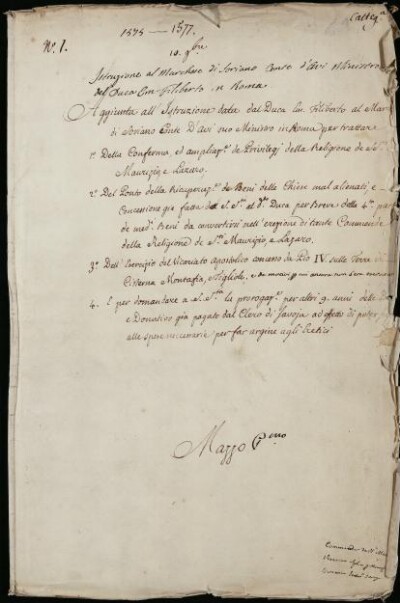 Categ.ª
1575 — 1577.
N.º 1.
10. 9bre
Istruzione al Marchese di Soriano Conte d'Avi Ministro
del Duca Em. Filiberto in Roma
Aggiunta all'Istruzione data dal Duca Em. Filiberto al Mar
di Soriano Conte D'Avi suo Ministro in Roma per trattar
1.º Della Conferma, ed ampliaz.e de Privilegj della Religione de S.ti
Maurizio, e Lazaro.
2.º Del Ponto della Ricuperaz.e de Beni delle Chiese mal alienati, e
Concessione già fatta da S. S.tà al d.º Duca per Breve della 4.ª par
de med.i Beni da convertirsi nell'erezione di tante Commende
della Religione de S.ti Maurizio, e Lazaro.
3.º Dell'Esercizio del Vicariato Apostolico concesso da Pio IV sulle Terre di
Cisterna, Montafia, e Tigliole,
4. E per domandare a S. S.tà la prorogaz.e per altri 9. anni delle
e Donativo già pagato dal Clero di Savoja ad effetto di poter
alle spese necessarie per far argine agli Eretici
Mazzo P.mo